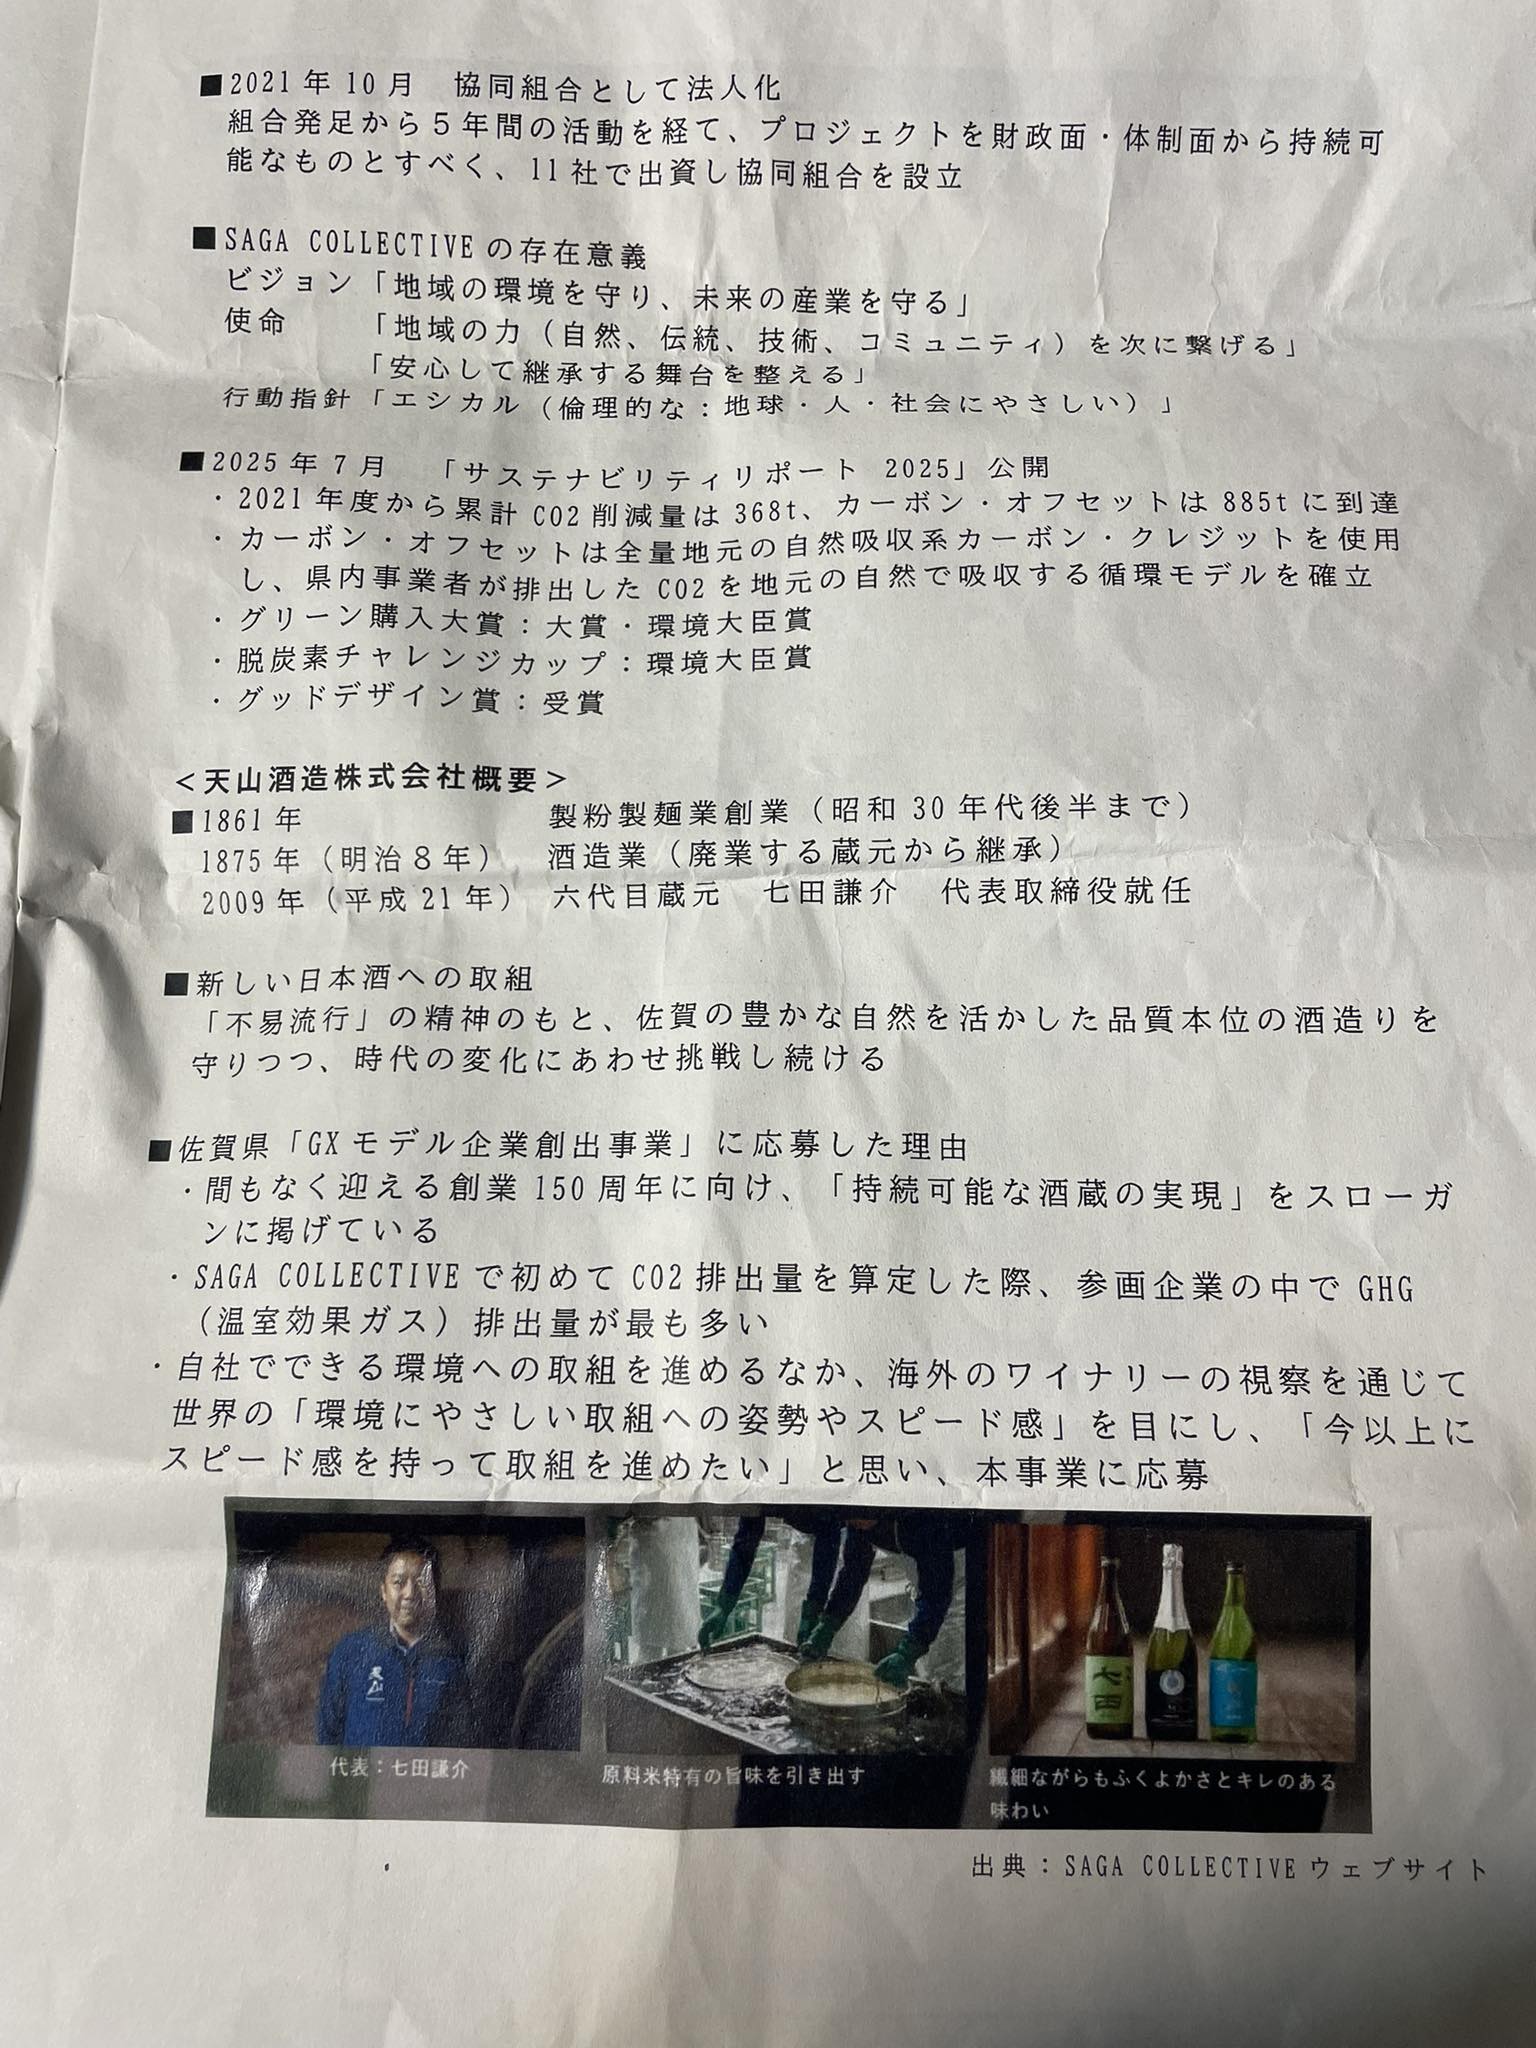 ■2021年10月　協同組合として法人化
組合発足から５年間の活動を経て、プロジェクトを財政面・体制面から持続可
能なものとすべく、11社で出資し協同組合を設立
■SAGA COLLECTIVEの存在意義
ビジョン「地域の環境を守り、未来の産業を守る」
使命　　「地域の力（自然、伝統、技術、コミュニティ）を次に繋げる」
「安心して継承する舞台を整える」
行動指針「エシカル（倫理的な：地球・人・社会にやさしい）」
■2025年7月　「サステナビリティリポート 2025」公開
・2021年度から累計CO2削減量は368t、カーボン・オフセットは885tに到達
・カーボン・オフセットは全量地元の自然吸収系カーボン・クレジットを使用
し、県内事業者が排出したCO2を地元の自然で吸収する循環モデルを確立
・グリーン購入大賞：大賞・環境大臣賞
・脱炭素チャレンジカップ：環境大臣賞
・グッドデザイン賞：受賞
＜天山酒造株式会社概要＞
■1861年　製粉製麺業創業（昭和30年代後半まで）
1875年（明治８年）　酒造業（廃業する蔵元から継承）
2009年（平成21年）　六代目蔵元　七田謙介　代表取締役就任
■新しい日本酒への取組
「不易流行」の精神のもと、佐賀の豊かな自然を活かした品質本位の酒造りを
守りつつ、時代の変化にあわせ挑戦し続ける
■佐賀県「GXモデル企業創出事業」に応募した理由
・間もなく迎える創業150周年に向け、「持続可能な酒蔵の実現」をスローガ
ンに掲げている
・SAGA COLLECTIVEで初めてCO2排出量を算定した際、参画企業の中でGHG
（温室効果ガス）排出量が最も多い
・自社でできる環境への取組を進めるなか、海外のワイナリーの視察を通じて
世界の「環境にやさしい取組への姿勢やスピード感」を目にし、「今以上に
スピード感を持って取組を進めたい」と思い、本事業に応募
天山
七田
代表：七田謙介
原料米特有の旨味を引き出す
繊細ながらもふくよかさとキレのある
味わい
出典：SAGA COLLECTIVEウェブサイト